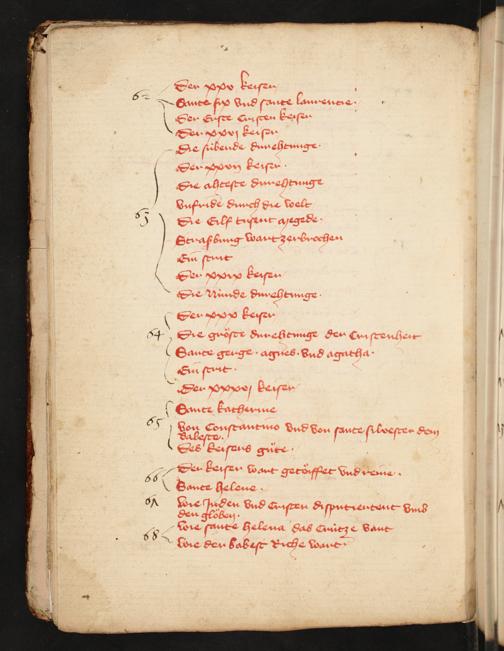 Der xxv keiser
62 Sante six vnd sante laurencie.
Der Erste Cristen keiser
Der xxvj keiser
Die sübende durehtunge.
Der xxvij keiser.
Die ahteste durehtunge
Vnfride durch die welt
63 Die Eilf tusent megede.
Straßburg wart zerbrochen
Ein strit
Der xxix keiser
Die Nünde durehtunge.
Der xxx keiser
64 Die gröste durehtunge der Cristenheit
Sante gerge. agnes. vnd agatha.
Ein strit.
Der xxxj keiser
Sante katherine
65 Von Constantino vnd von sante silvester dem
babeste.
Des keisers güte.
66 Der keiser wart getöiffet vnd reine.
Sante Helene.
67 Wie Juden vnd Cristen disputiertent vmb
den glöben.
68 Wie sante Helena das Crütze vant
Wie der babest Riche wart.